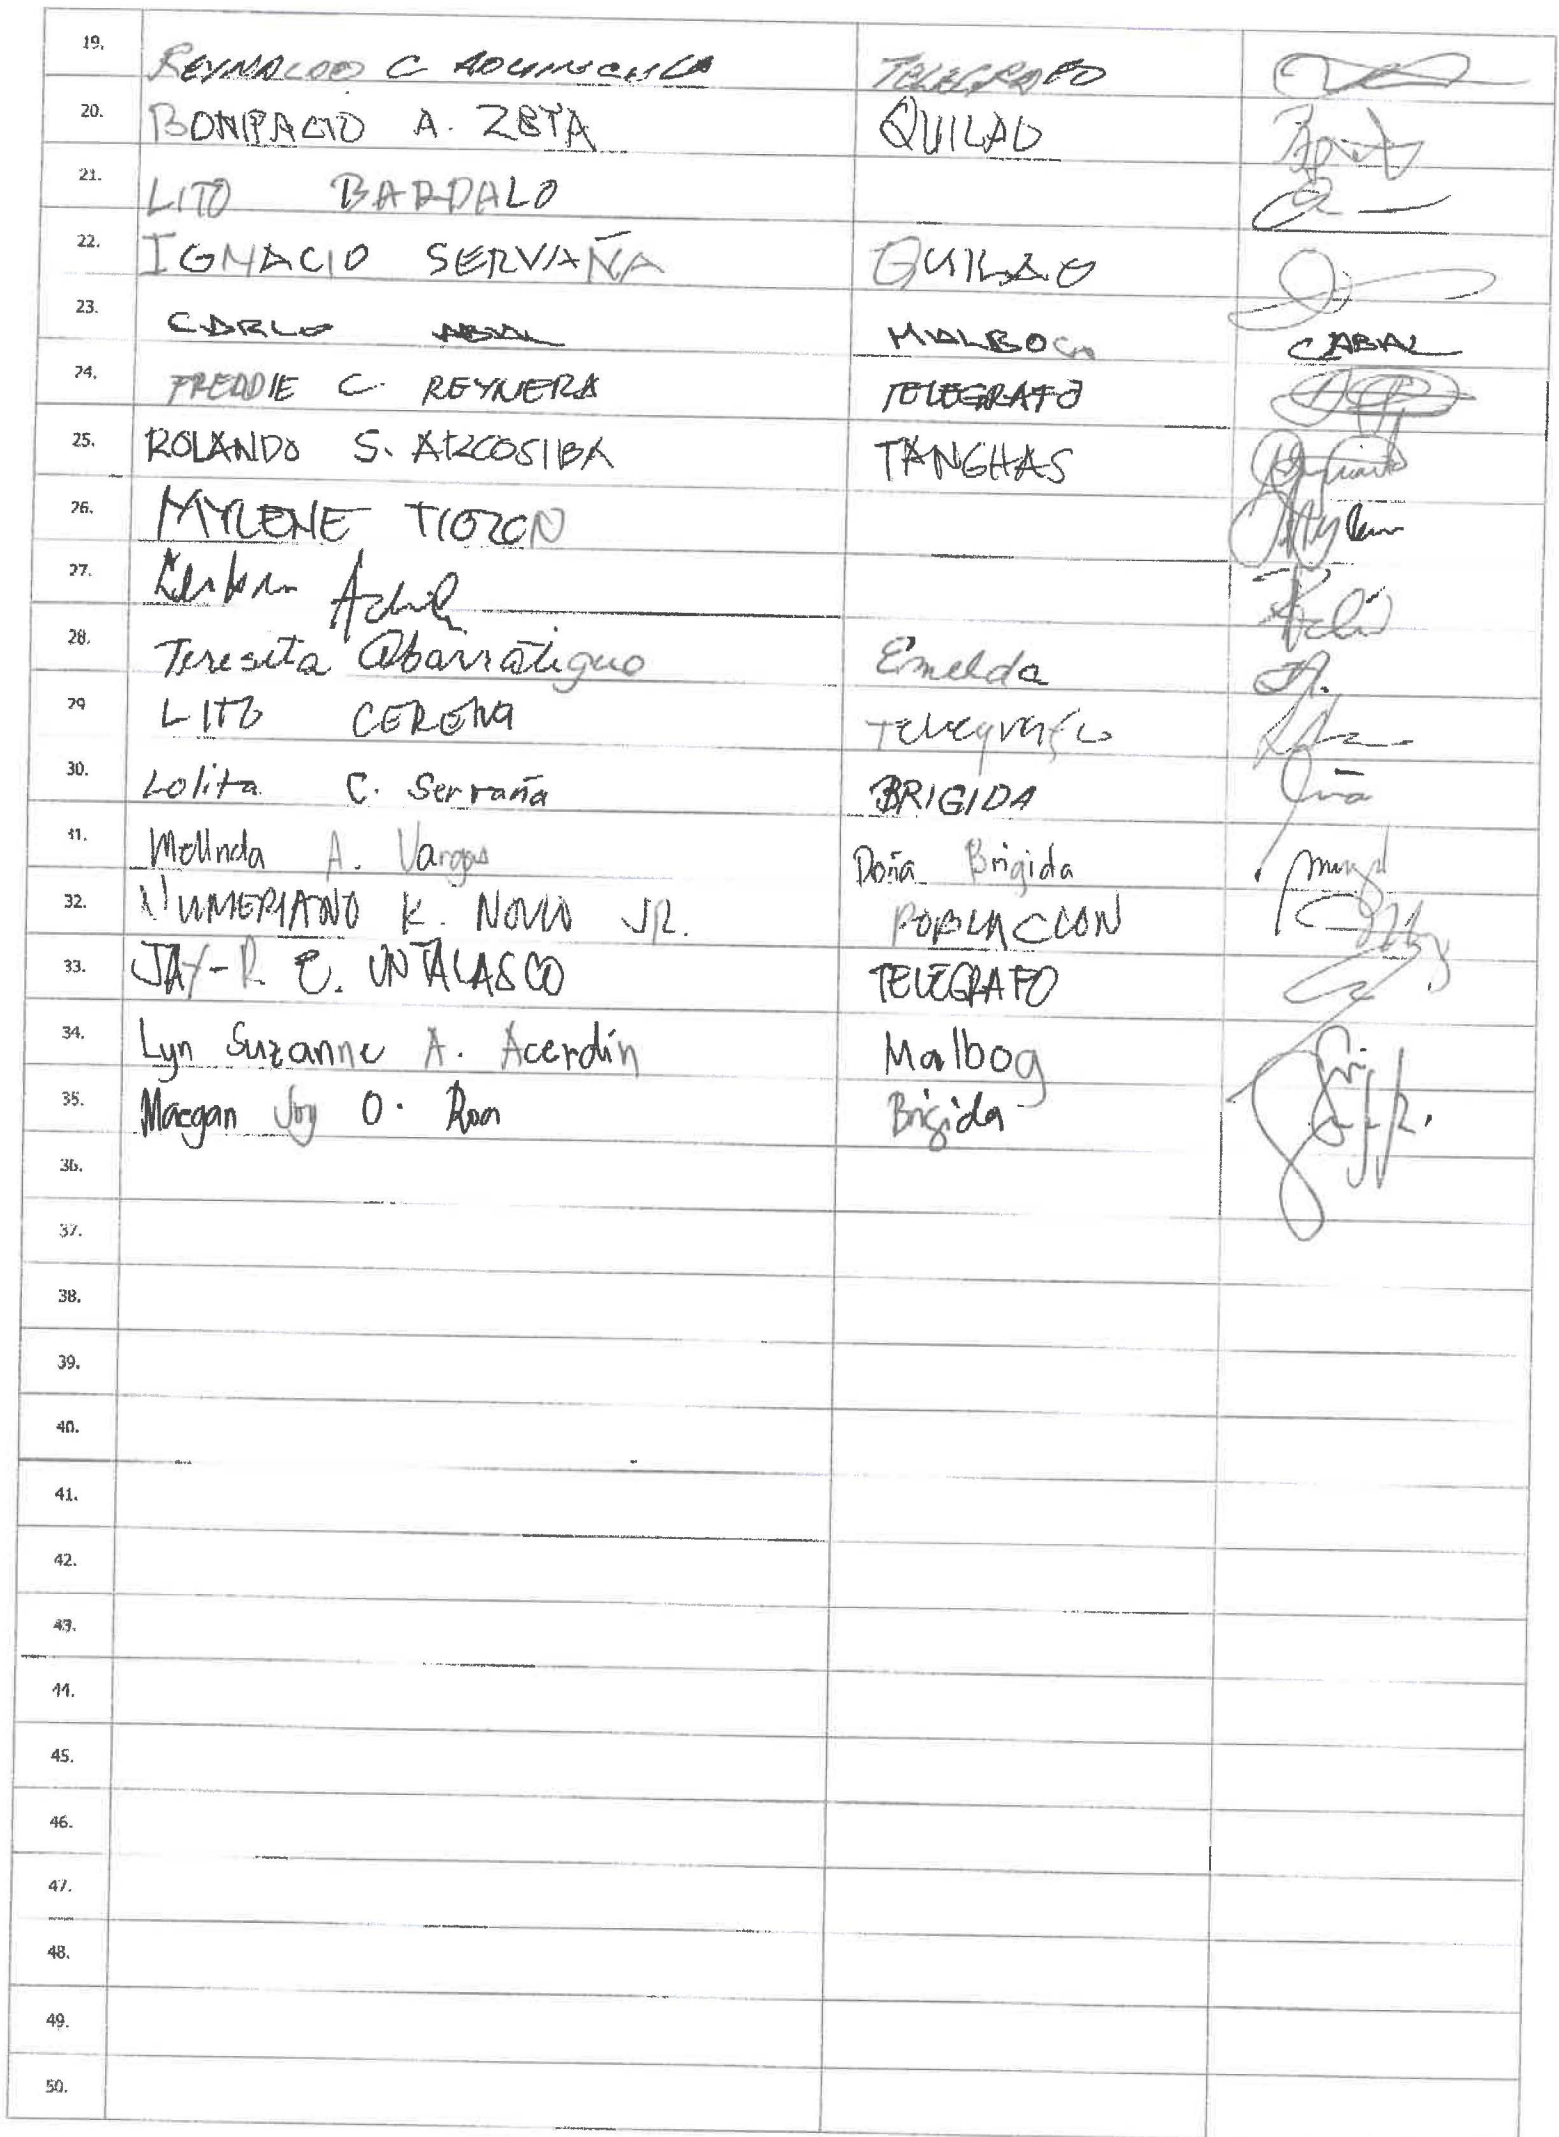 19. REYNALDO C
TELEGRAFO
20. BONIFACIO A. ZETA QUILAO
21. LITO BARDALO
22. IGNACIO SERVAÑA QUILAO
23. CARLO ABAL MALBOG CABAL
24. FREDDIE C. REYNERA TELEGRAFO
25. ROLANDO S. ARCOSIBA TANGHAS
26. MYRLENE TIOZON
27.
28. Teresita Abarratigue Emelda
29 LITO CERENA Telegrafo
30. Lolita C. Serraña BRIGIDA
31. Melinda A. Vargas Doña Brigida
32. NUMERIANO K. NOVIO JR. POBLACION
33. JAY-R C. UNTALASCO TELEGRAFO
34. Lyn Suzanne A. Acerdin Malbog
35. Maegan Joy O. Roa Brigida
36.
37.
38.
39.
40.
41.
42.
43.
44.
45.
46.
47.
48.
49.
50.